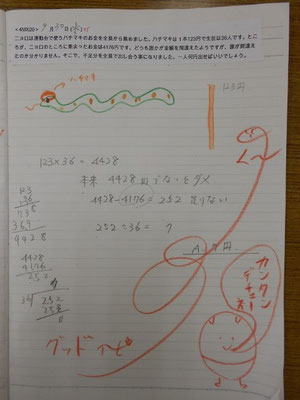 <4MIX20> 9月30日(火)
二×口は運動会で使うハチマキのお金を全員から集めました。ハチマキは1本123円で生徒は36人です。とこ
ろが、二×口のところに集まったお金は4176円です。どうも誰かが金額を間違えたようですが、誰が間違え
たのか分かりません。そこで、不足分を全員でだし合う事になりました。一人何円出せばいいでしょう。
123円
123×36 = 4428
本来 4428円でないとダメ
4428-4176=252 足りない
252÷36= 7
A. 7円
123
36
738
369
4428
4428
4176
252
36 252
252
0
グッドアイデ
カンタン
デチュー